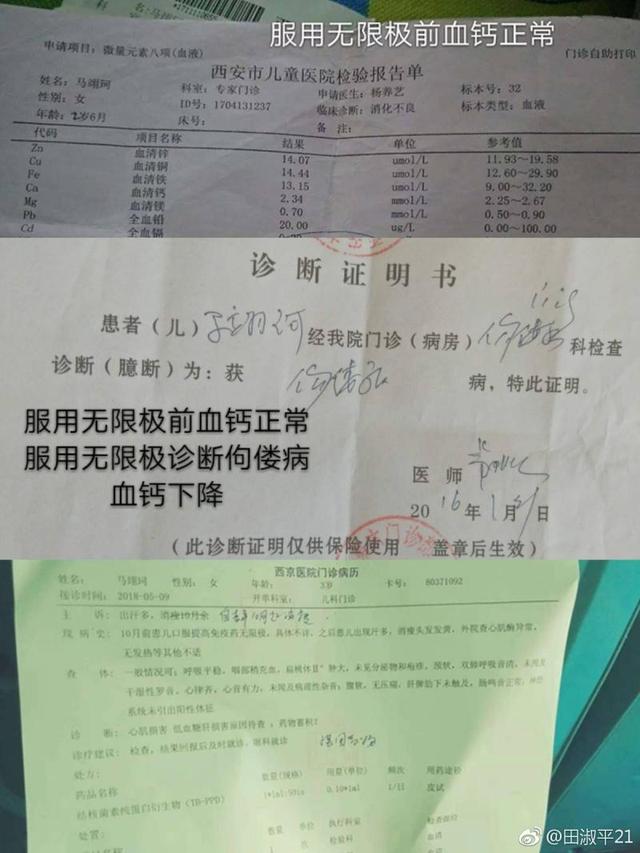 服用无限极前血钙正常
申请项目: 微量元素八项(血液)
门诊自助打印
西安市儿童医院检验报告单
姓名: 马翊珂 科室: 专家门诊 申请医生: 杨养艺 标本号: 32
性别: 女 ID号: 1704131237 临床诊断: 消化不良 标本类型: 血液
年龄: 2岁6月 床号: 备 注:
代码 项目名称 结果 单位 参考值
Zn 血清锌 14.07 umol/L 11.93~19.58
Cu 血清铜 14.44 umol/L 12.60~29.90
Fe 血清铁 13.15 umol/L 9.00~32.20
Ca 血清钙 2.34 mmol/L 2.25~2.67
Mg 血清镁 0.70 mmol/L 0.50~0.90
Pb 全血铅 20.00 ug/L 0.00~100.00
Cd 全血镉
诊断证明书
患者(儿) 马翊珂 经我院门诊(病房) 科检查
诊断(臆断)为: 获 病, 特此证明。
服用无限极前血钙正常
服用无限极诊断佝偻病
血钙下降
医 师
2016年1月21日
(此诊断证明仅供保险使用 盖章后生效)
西京医院门诊病历
姓名: 马翊珂 性别: 女 年龄: 3岁 卡号: 80371092
接诊时间: 2018-05-09 开单科室: 儿科门诊
主 诉: 出汗多, 消瘦10月余
现 病 史: 10月前患儿口服提高免疫药无限极, 具体不详, 之后患儿出现汗多, 消瘦头发发黄, 外院查心肌酶异常,
无发热等其他不适
查 体: 一般情况可: 呼吸平稳, 咽部稍充血, 扁桃体II°肿大, 未见分泌物和疱疹, 颈软, 双肺呼吸音清, 未闻及
干湿性罗音, 心律齐, 心音有力, 未闻及病理性杂音; 腹软, 无压痛, 肝脾肋下未触及, 肠鸣音正常; 神经
系统未引出阳性体征
诊 断: 心肌损害 低血糖肝损害原因待查, 药物蓄积?
诊疗建议: 检查, 结果回报后及时就诊, 眼科就诊
处方:
药品名称 数量(规格) 用量(单位) 频次 用药途径
结核菌素纯蛋白衍生物 (TB-PPD) 0.10*1ml 1/日 皮试
处置: 数量 单位 执行科室
检验科 血清
@田淑平21